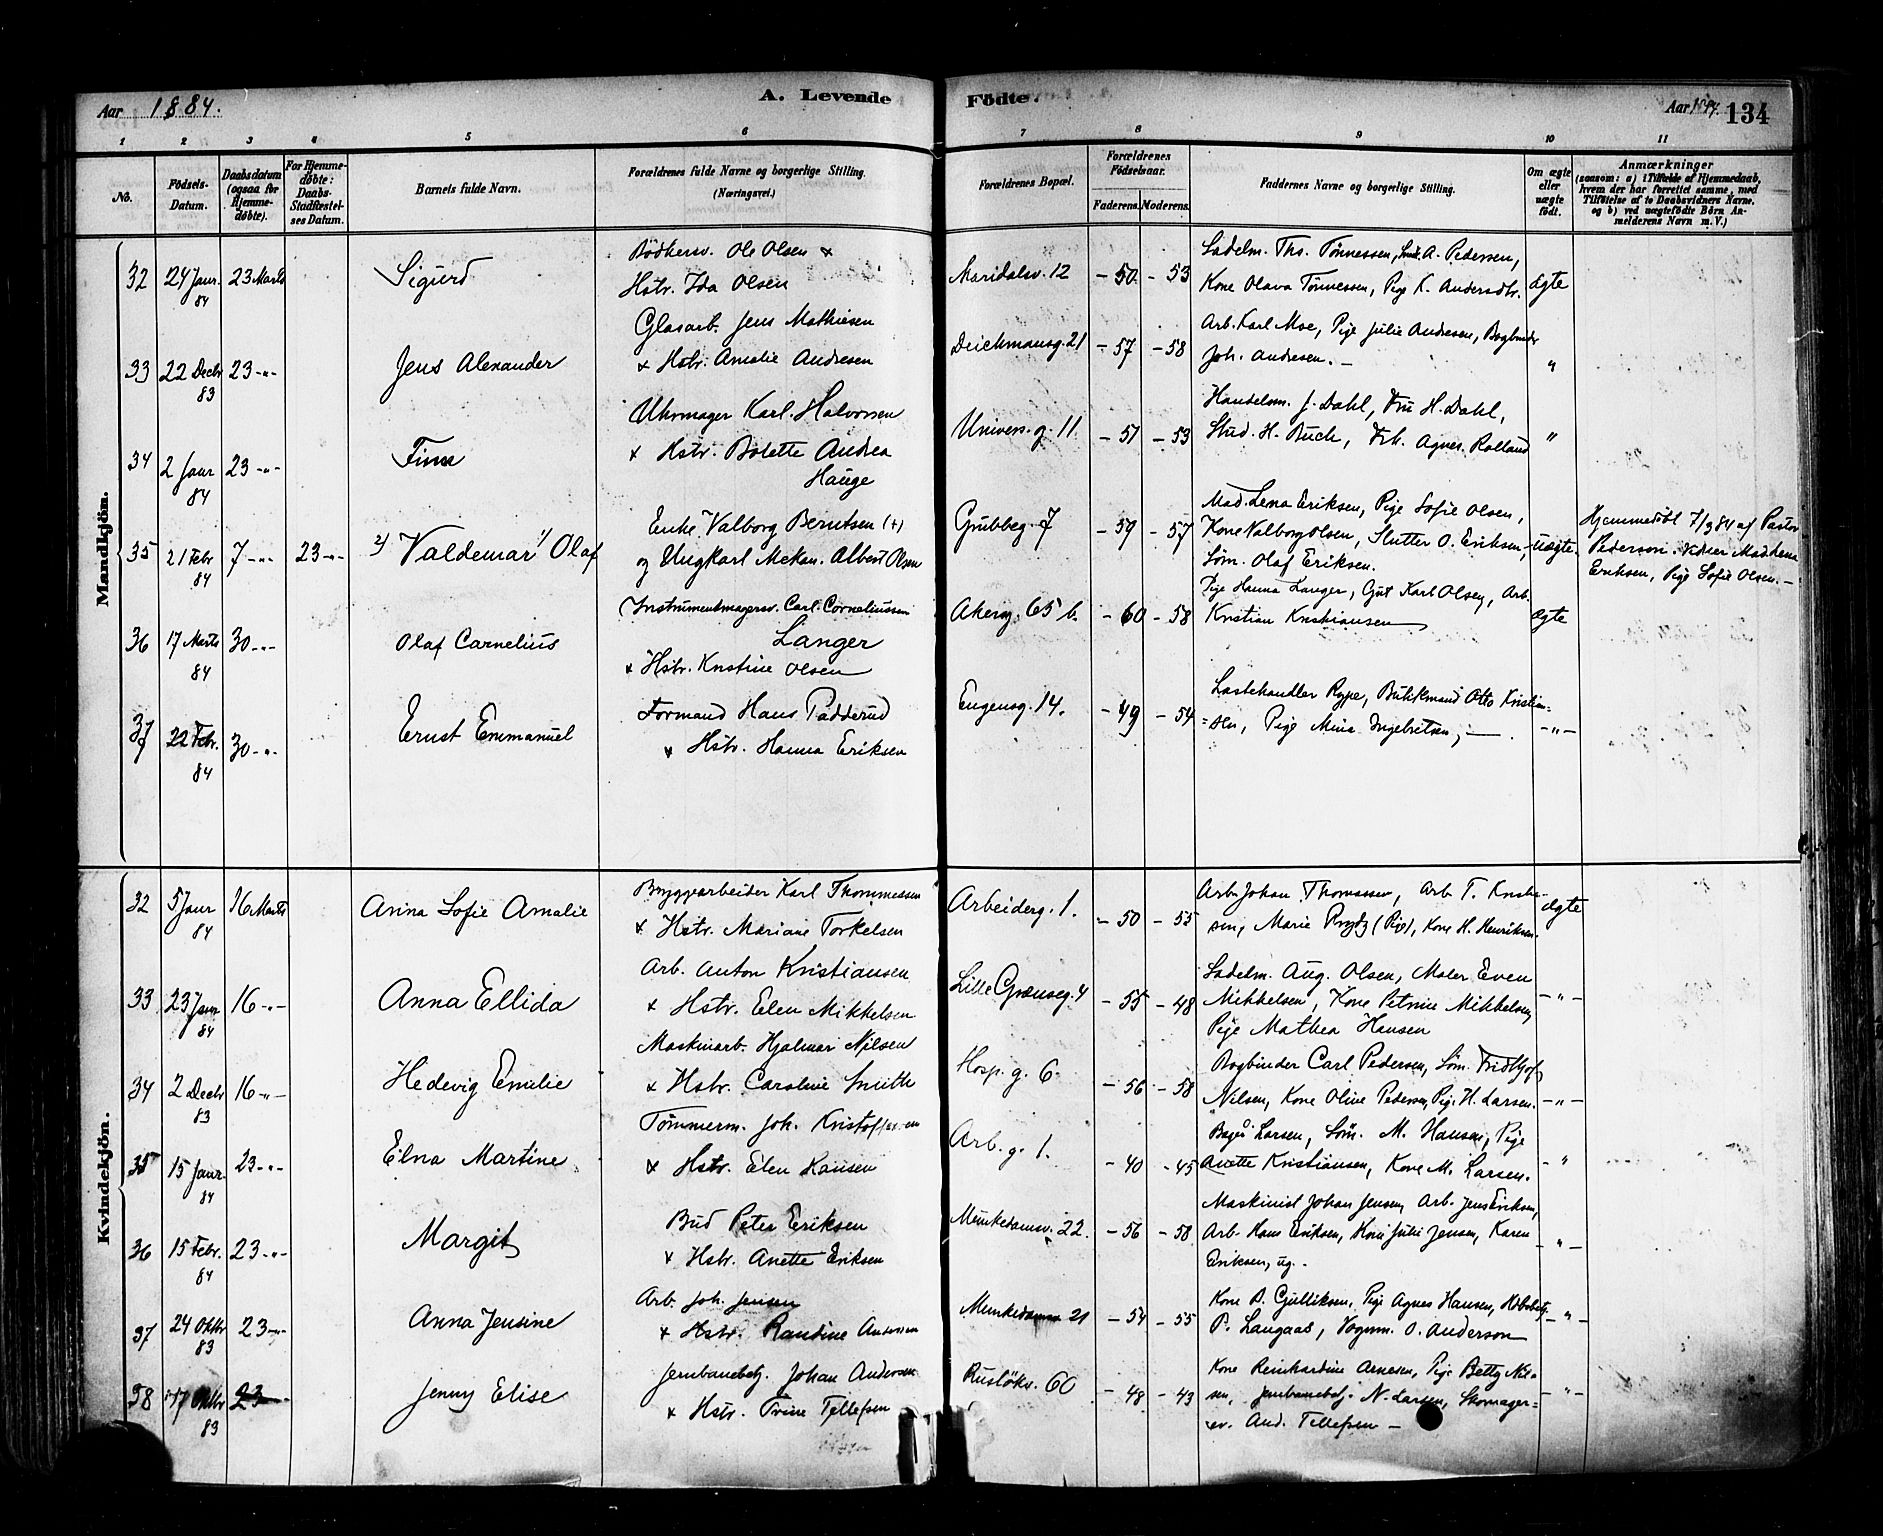 Aar 1884. A. Levende Födte. Aar 1884. 134
1 2 3 4 5 6 7 8 9 10 11
No. Födsels-Datum. Daabsdatum (ogsaa for Hjemme-døbte). For Hjemme-døbte: Daabs-Stadfæstel-ses Datum. Barnets fulde Navn. Forældrenes fulde Navne og borgerlige Stilling. (Næringsvei.) Forældrenes Bopæl. Forældrenes Födselsaar. Faderens. Moderens. Faddernes Navne og borgerlige Stilling. Om ægte eller uægte födt. Anmærkninger (saasom: a) i Tilfælde af Hjemmedaab, hvem der har forrettet samme, med Tilföielse af to Daabsvidners Navne, og b) ved uægtefödte Börn An-melderens Navn m. V.)
Mandkjön.
32 24 Janr. 84 23 Marts Sigurd Bödkersv. Ole Olsen &
Hstr. Ida Olsen Maridalsv. 12 - 50 - 53 Sadelm. Ths. Tønnessen, A. Pedersen,
Kone Olava Tönnessen, Pige K. Andersdtr. ægte
33 22 Decbr 83 23 -"- Jens Alexander Glasarb. Jens Mathiesen
& Hstr. Amalie Andresen Deichmansg. 21 - 57 - 58 Arb. Karl Moe, Pige Julie Andresen, Bogbinder
Joh. Andresen. - "
34 2 Janr 84 23 -"- Finn Uhrmager Karl Halvorsen
& Hstr. Bolette Andrea
Hauge Univers. g. 11 - 51 - 53 Handelsm. J. Dahl, Fru H. Dahl,
Stud. H. Buch, Frk. Agnes Rolland "
35 21 Febr 84 7 -"- 23 -"- 2) Valdemar 1) Olaf Enke Valborg Berntsen (+)
og Ungkarl Mekan. Albert Olsen Grubbeg. 7 - 59 - 57 Mad. Lena Eriksen, Pige Sofie Olsen,
Kone Valborg Olsen, Slutter O. Eriksen,
Söm. Olaf Eriksen. uægte Hjemmedøbt 7/3 84 af Pastor
Pederson. Vidner Mad Lena
Eriksen, Pige Sofie Olsen. -
36 17 Marts 84 30 -"- Olaf Carnelius Instrumentmagersv. Carl Corneliussen
Langer
& Hstr. Kristine Olsen Akersg. 65 b. - 60 - 58 Pige Hanna Langer, Gut Karl Olsen, Arb.
Kristian Kristiansen ægte
37 22 Febr. 84 30 -"- Ernst Emmanuel Formand Hans Padderud
& Hstr. Hanna Eriksen Eugensg. 14. - 49 - 54 Lastehandler Rype, Butikmand Otto Kristian-
=sen, Pige Mina Ingebretsen, -"-
Kvindekjön.
32 5 Janr 84 16 Marts Anna Sofie Amalie Bryggearbeider Karl Thommessen
& Hstr. Mariane Torkelsen Arbeiderg. 1. - 50 - 55 Arb. Johan Thomassen, Arb. T. Kristi-
sen, Marie (Pige), Kone H. Henriksen. ægte
33 23 Janr 84 16 -"- Anna Ellida Arb. Anton Kristiansen
& Hstr. Elen Mikkelsen Lille Grænseg. 4 - 55 - 48 Sadelm. Aug. Olsen, Maler Even
Mikkelsen, Kone Petrine Mikkelsen,
Pige Mathea Hansen -"-
34 2 Decbr 83 16 -"- Hedevig Emilie Maskinarb. Hjalmar Nilsen
& Hstr. Caroline Smith Hosp. g. 6 - 56 - 58 Bogbinder Carl Pedersen, Söm. Fridthjof
Nilsen, Kone Olive Pedersen, Pige H. Larsen. -"-
35 15 Janr. 84 23 -"- Elna Martine Tömmerm. Joh. Kristoffersen
& Hstr. Elen Hansen Arb. g. 1. - 40 - 45 Larsen, Söm. M. Hansen, Pige
Anette Kristiansen, Kone M. Larsen. -"
36 15 Febr. 84 23 -"- Margit Bud Peter Eriksen
& Hstr. Anette Eriksen Munkedamsv. 22. - 56 - 58 Maskinist Johan Jensen, Arb. Jens Eriksen,
Arb. Hans Eriksen, Kone Julie Jensen, Karen
Eriksen, ug. - -"-
37 24 Oktbr 83 23 -"- Anna Jensine Arb. Joh. Jensen
& Hstr. Randine Andersen Munkedamsv 21 - 54 - 55 Kone B. Gulliksen, Pige Agnes Hansen,
P. Langaas, Vognm. O. Anderson -"-
38 17 Oktbr 83 23 Jenny Elise Jernbanebetj. Johan Andersen
& Hstr. Trine Tellefsen Ruslökv. 60 - 48 - 43 Kone Reinhardine Arnesen, Pige Betty Nil-
sen, Jernbanebetj. N. Larsen, Skomager-
sv. And. Tellefsen - -"-